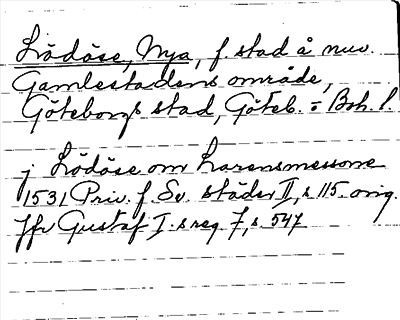 Lödöse, Nya, f. stad å nuv.
Gamlestadens område,
Göteborgs stad, Göteb. o Boh. l.
j Lödöse om Larensmessone
1531 Priv. f. Sv. städer II, s 115. orig.
Jfr Gustaf I. s reg. 7, s. 547